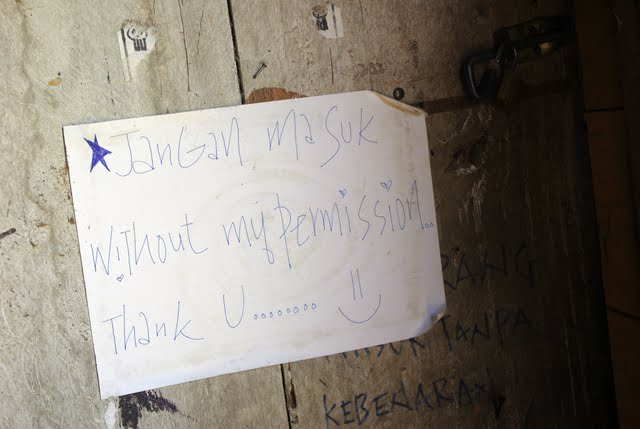 JanGan masuk
Without my permission..
Thank U........
RANG
TANPA
KEBENARAN